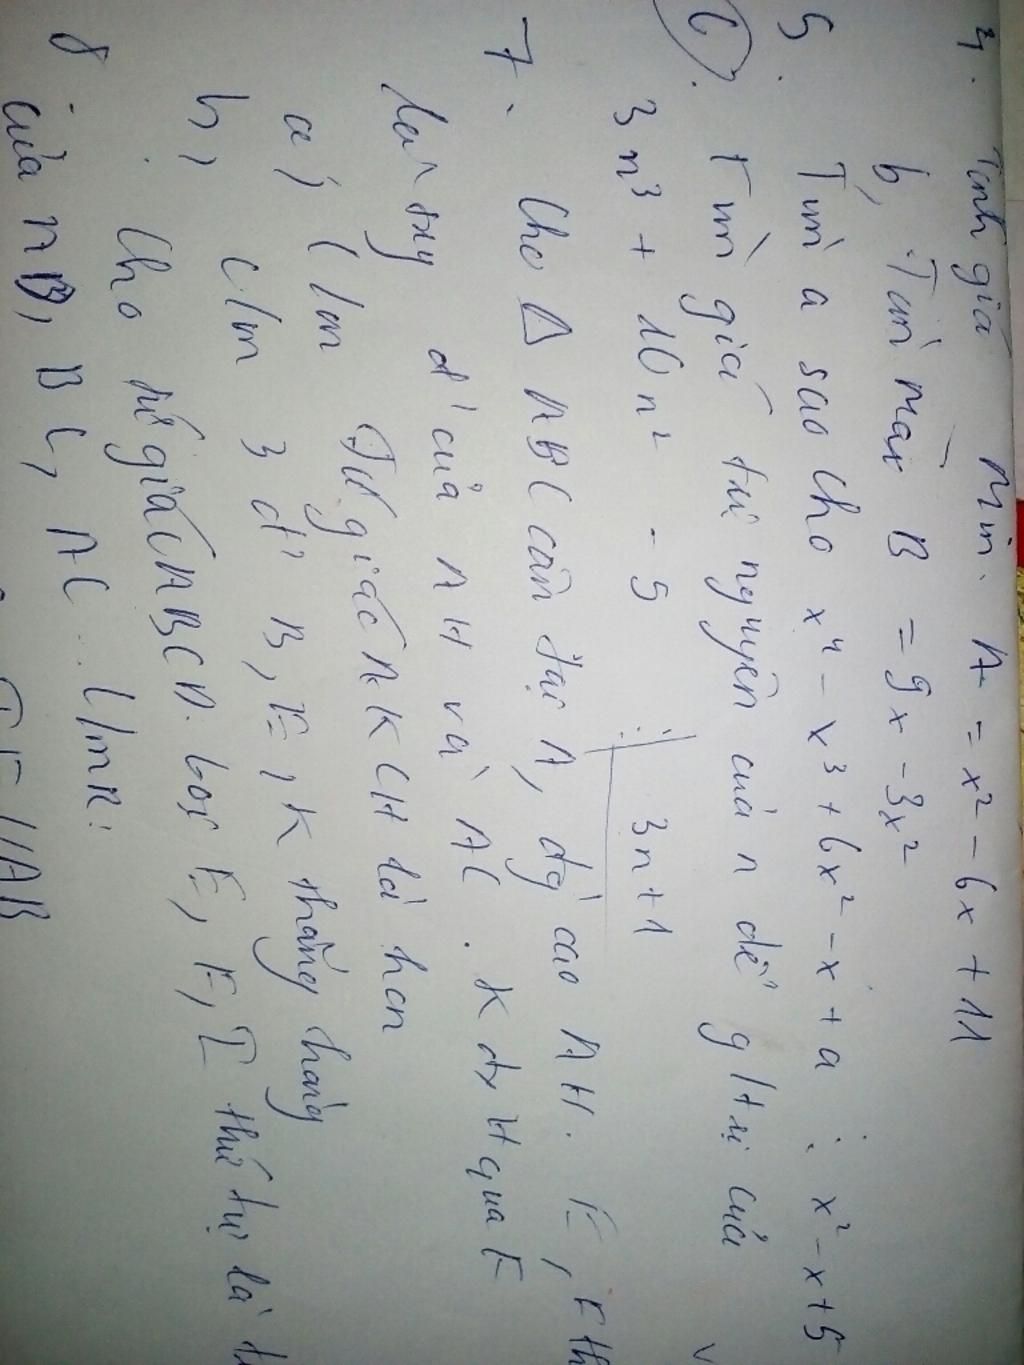 4. Tính giá Min. A = x² - 6x + 11
b, Tìm max B = 9x - 3x²
5. Tìm a sao cho x⁴ - x³ + 6x² - x + a ⋮ x² - x + 5
6. Tìm giá trị nguyên của n để g/trị của
3n³ + 10n² - 5 ⋮ 3n + 1
7. Cho Δ ABC cân tại A, đg cao AH. E, F th
là t
đ' của AH và AC. K đx H qua F
a, C/m Tứ giác AKCH là hcn
b, C/m 3 đ' B, E, K thẳng hàng
8. Cho tứ giác ABCD. Gọi E, F, I thứ tự là t
của AB, BC, AC. C/mR:
//AB